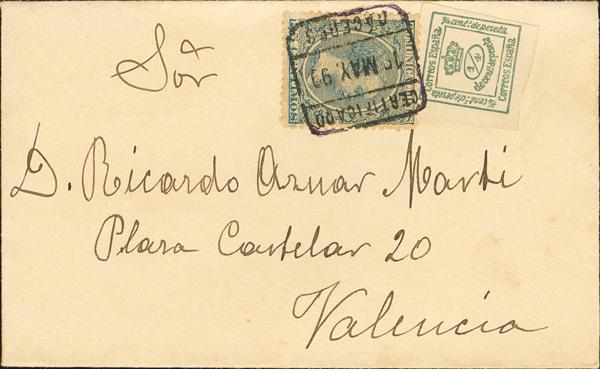 Sor
D. Ricardo Aznar Martí
Plaza Castelar 20
Valencia
CERTIFICADO
MAY. 99
CACERES
COMUNICACIONES
¼ cent.º de peseta
Correos España
¼
de cent.º de peseta
Correos España
¼ cent.º de peseta